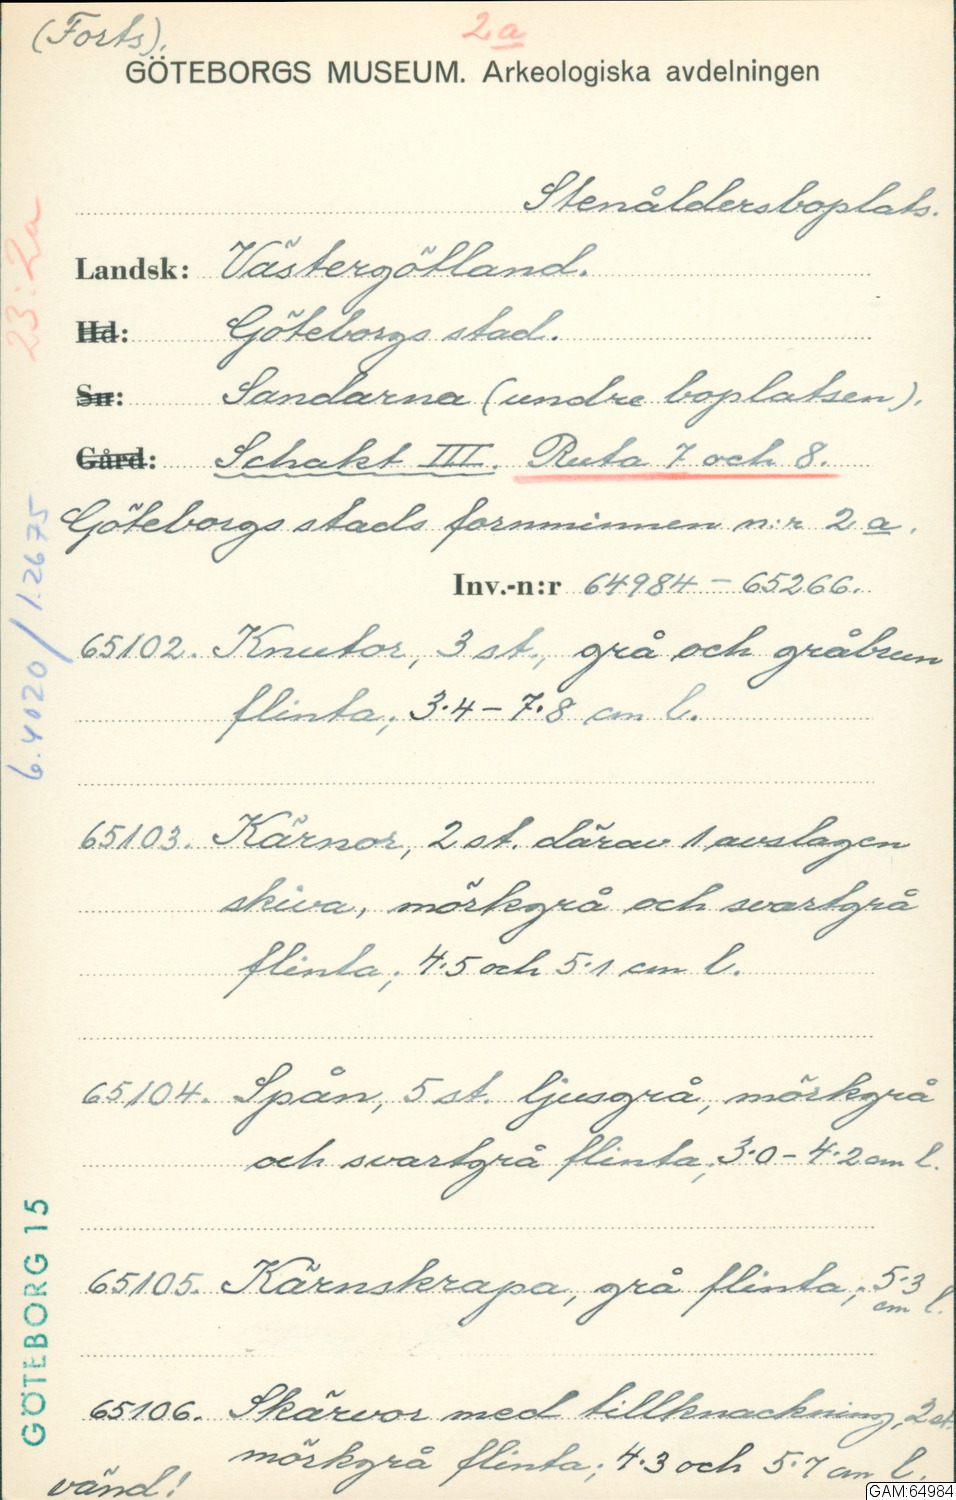 (Forts).
2a
GÖTEBORGS MUSEUM. Arkeologiska avdelningen
Stenåldersboplats.
Landsk: Västergötland.
Hd: Göteborgs stad.
Sn: Sandarna (undre boplatsen).
Gård: Schakt III. Ruta 7 och 8.
Göteborgs stads fornminnen n:r 2a.
Inv.-n:r 64984 – 65266.
65102. Knutor, 3 st., grå och gråbrun
flinta; 3.4 – 7.8 cm l.
65103. Kärnor, 2 st. därav 1 avslagen
skiva, mörkgrå och svartgrå
flinta; 4.5 och 5.1 cm l.
65104. Spån, 5 st. ljusgrå, mörkgrå
och svartgrå flinta; 3.0 – 4.2 cm l.
65105. Kärnskrapa, grå flinta; 5.3
cm l.
65106. Skärvor med tillknackning, 2 st.
mörkgrå flinta; 4.3 och 5.7 cm l.
vänd!
23:2a
6.4020/1.2675
GÖTEBORG 15
GAM:64984